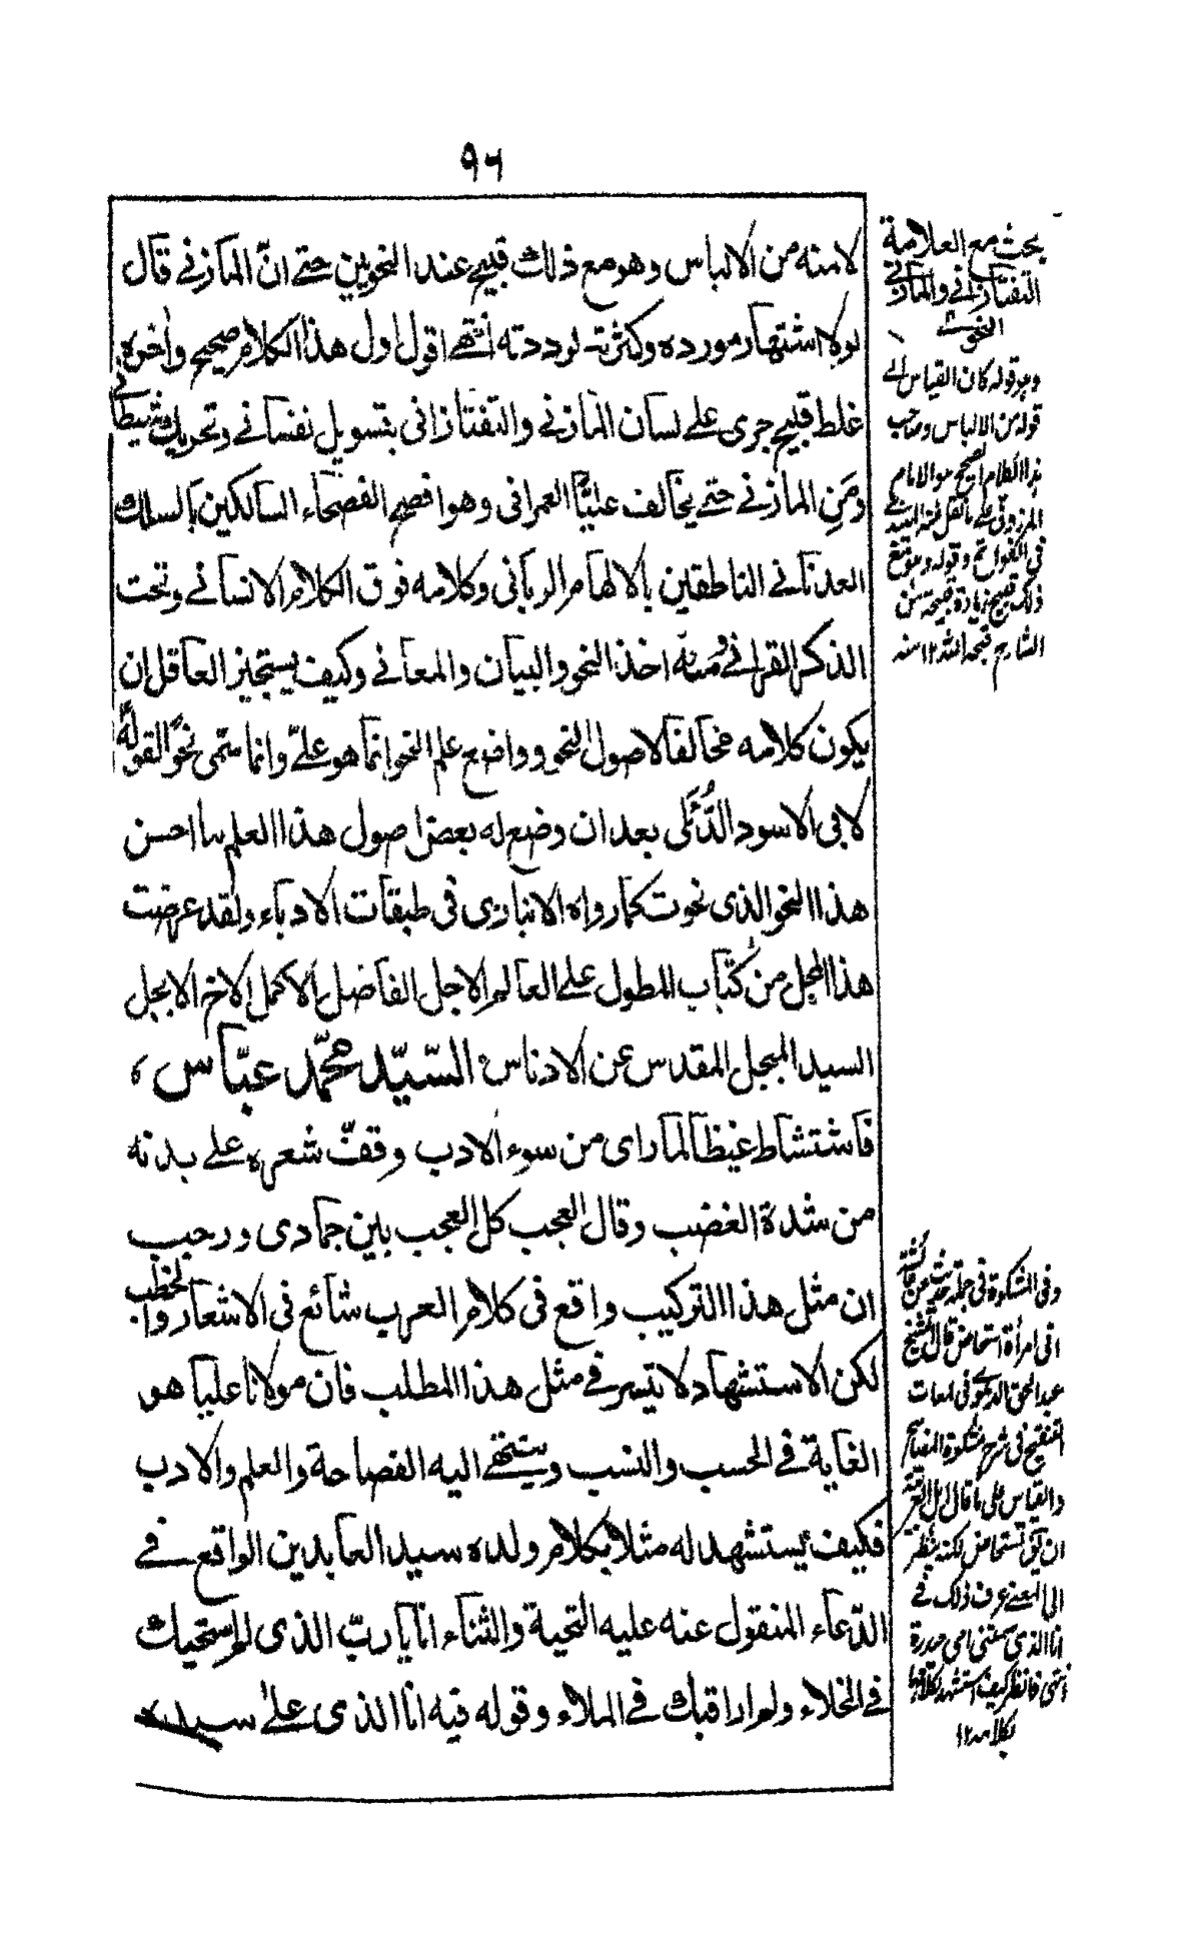 ٩٦
لامنه من الالباس وهو مع ذلك قبيح عند النحويين حتے انّ المازنے قال
لولا اشتهار مورده وكثرته لرددته انتهے اقول اول هذا الكلام صحيح واٰخره
غلط قبيح جرى علے لسان المازنے والتفتازانى بتسويل نفسانے وتحريك شيطانے
ومَنِ المازنے حتے يخالف عليًّا العمرانى وهو افصح الفصحاء السالكين بالسلك
العدنانے الناطقين بالالهام الربانى وكلامه فوق الكلام الانسانے وتحت
الذكر القرانے ومنه اخذ النحو والبيان والمعانے وكيف يستجيز العاقل ان
يكون كلامه مخالفا لاصول النحو وواضع علم النحو انما هو علےّ وانما سمّى نحوًا لقوله
لابى الاسود الدُّئَلى بعد ان وضع له بعض اصول هذا العلم ما احسن
هذا النحو الذى نحوت كما رواه الانبارى فى طبقات الادباء ولقد عرضت
هذا المحل من كتاب المطول علے العالم الاجل الفاضل الاكمل الاخ الابجل
السيد المبجل المقدس عن الادناس السّيّد محمّد عبّاس،
فاستشاط غيظا لما راى من سوء الادب وقفّ شعره علے بدنه
من شدة الغضب وقال العجب كل العجب بين جمادى ورجب
ان مثل هذا التركيب واقع فى كلام العرب شائع فى الاشعار والخطب
لكن الاستشهاد لا يتيسر فے مثل هذا المطلب فان مولانا عليا هو
الغاية فے الحسب والنسب وينتهے اليه الفصاحة والعلم والادب
فكيف يستشهد له مثلا بكلام ولده سيد العابدين الواقع فے
الدّعاء المنقول عنه عليه التحية والثناء انا يا ربّ الذى لم استحيك
فے الخلاء ولم اراقبك فے الملاء وقوله فيه انا الذى علےٰ سيده
بحث مع العلامة
التفتازانے والمازنے
النحوے
وهو قوله كان القياس الے
قوله من الالباس وصاحب
هذا الكلام الصحيح هو الامام
المرزوقى علے ما نقل عنه السيد
فى وقوله وهو مع
ذلك قبيح زيادة قبيحة من
الشارح قبحه الله ١٢ منه
وفى المشكوة فى جملة حديث عن عائشة
انى امرأة استحاض قال الشيخ
عبد الحق الدهلوى فى لمعات
التنقيح فى شرح مشكوة المصابيح
والقياس على ما قال اهل العربية
ان يقال تستحاض لكنه ينظر
الى المعنے عرف ذلك فے
انا الذى سمتنى امى حيدرة
انتهى فانظر كيف استشهد لكلامها
بكلامه ١٢